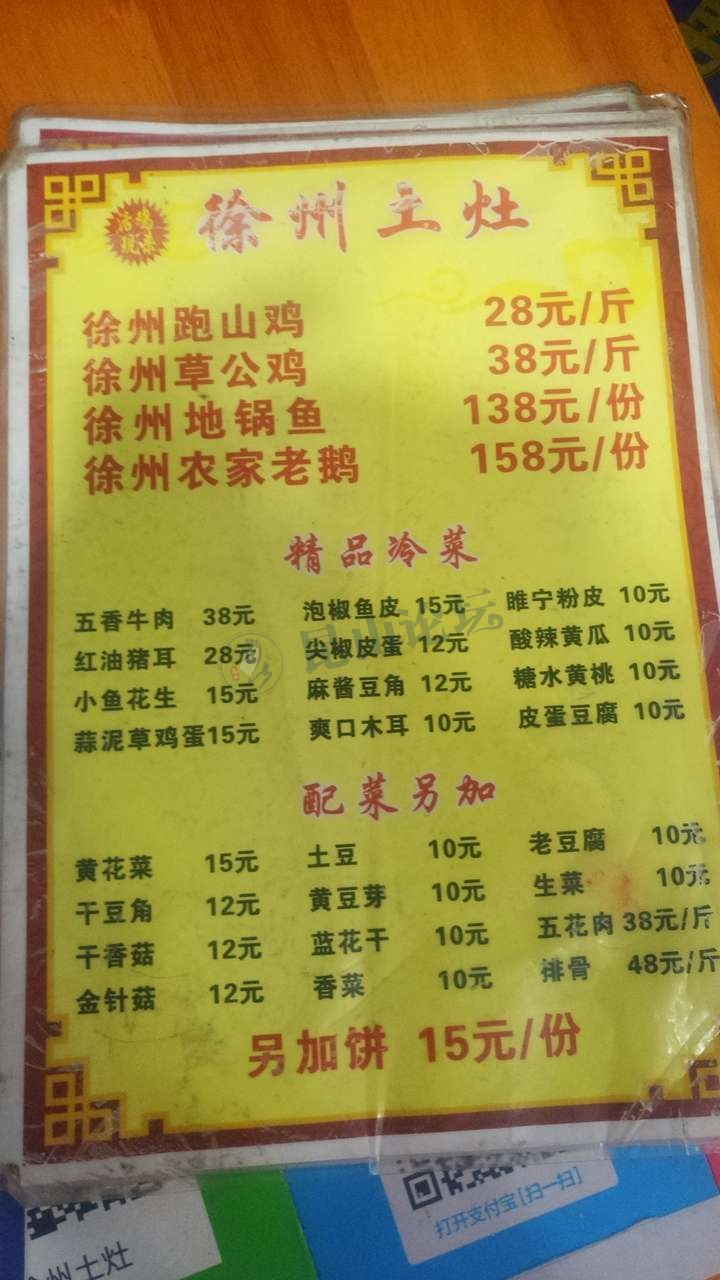 徐州土灶
徐州跑山鸡 28元/斤
徐州草公鸡 38元/斤
徐州地锅鱼 138元/份
徐州农家老鹅 158元/份
精品冷菜
五香牛肉 38元 泡椒鱼皮 15元 睢宁粉皮 10元
红油猪耳 28元 尖椒皮蛋 12元 酸辣黄瓜 10元
小鱼花生 15元 麻酱豆角 12元 糖水黄桃 10元
蒜泥草鸡蛋15元 爽口木耳 10元 皮蛋豆腐 10元
昆山论坛
配菜另加
黄花菜 15元 土豆 10元 老豆腐 10元
干豆角 12元 黄豆芽 10元 生菜 10元
干香菇 12元 蓝花干 10元 五花肉 38元/斤
金针菇 12元 香菜 10元 排骨 48元/斤
另加饼 15元/份
打开支付宝[扫一扫]
州土灶